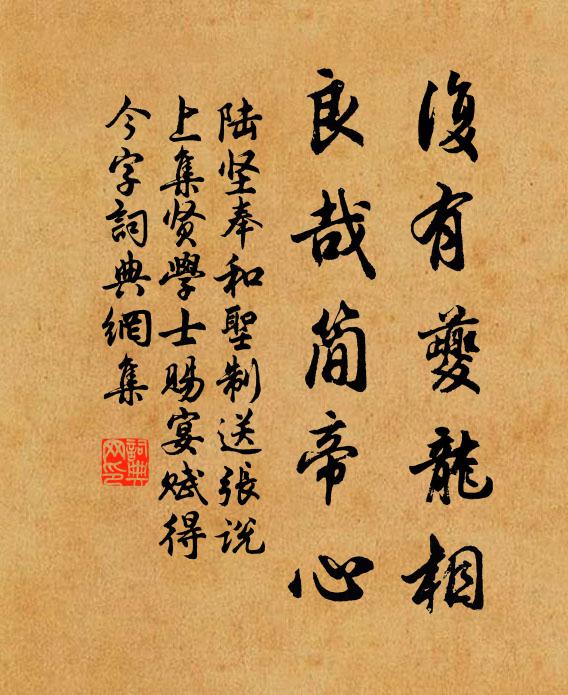 復有夔龍相
良哉简帝心
陆坚奉和聖制送张说
上集贤學士赐宴赋得
今字詞典網集
詞典
网印